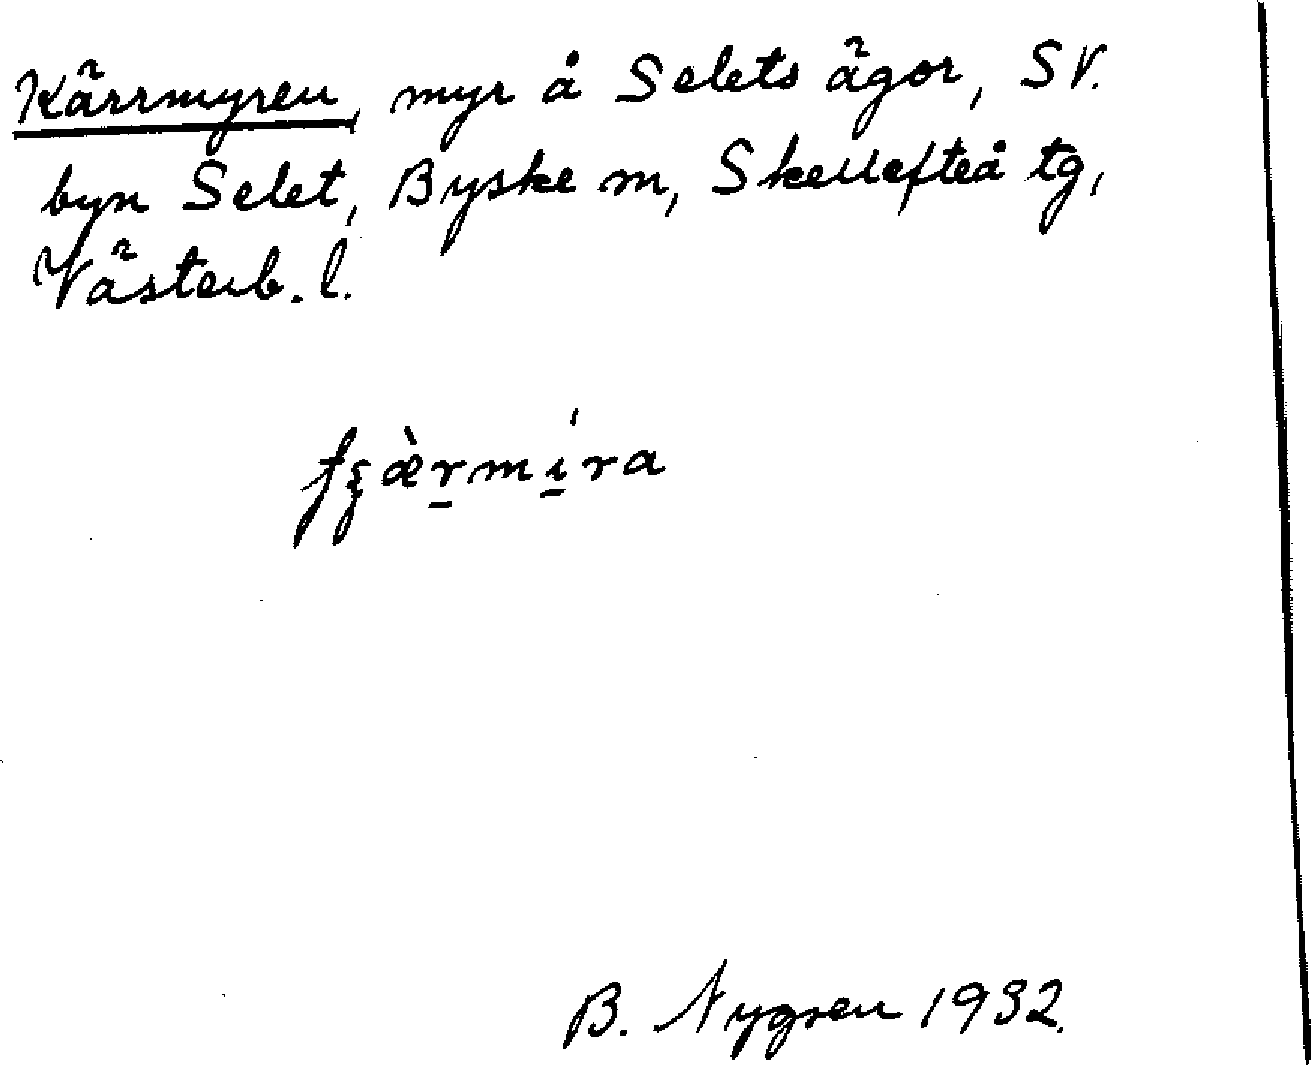 Kärrmyren, myr å Selets ägor, SV.
byn Selet, Byske sn, Skellefteå tg,
Västerb. l.
B. Nygren 1932.